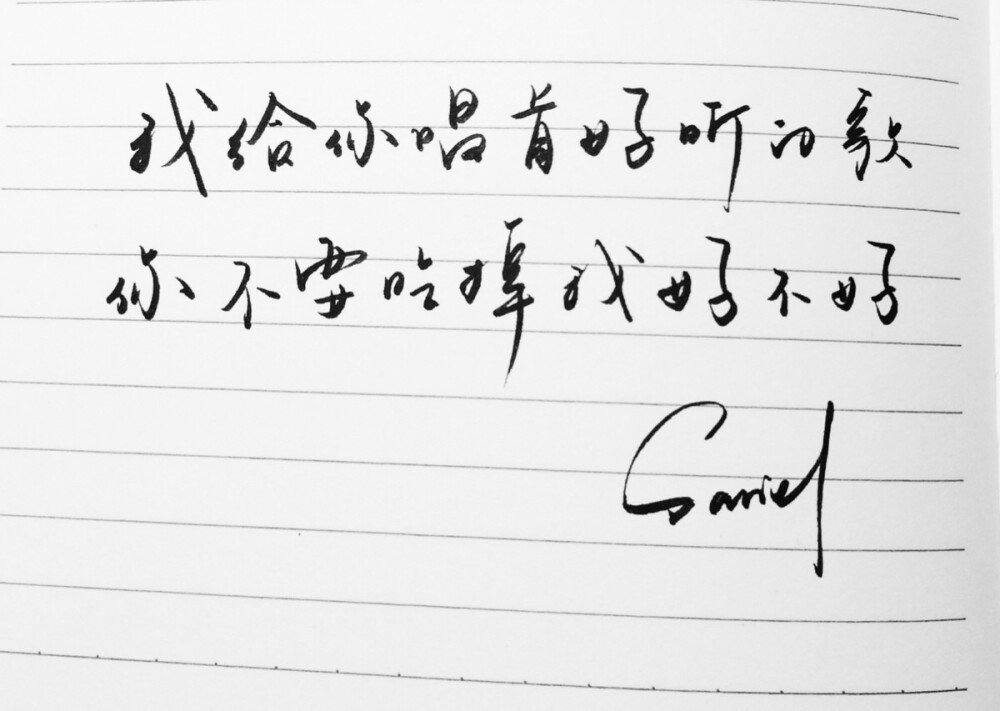 我给你唱首好听的歌
你不要吃掉我好不好